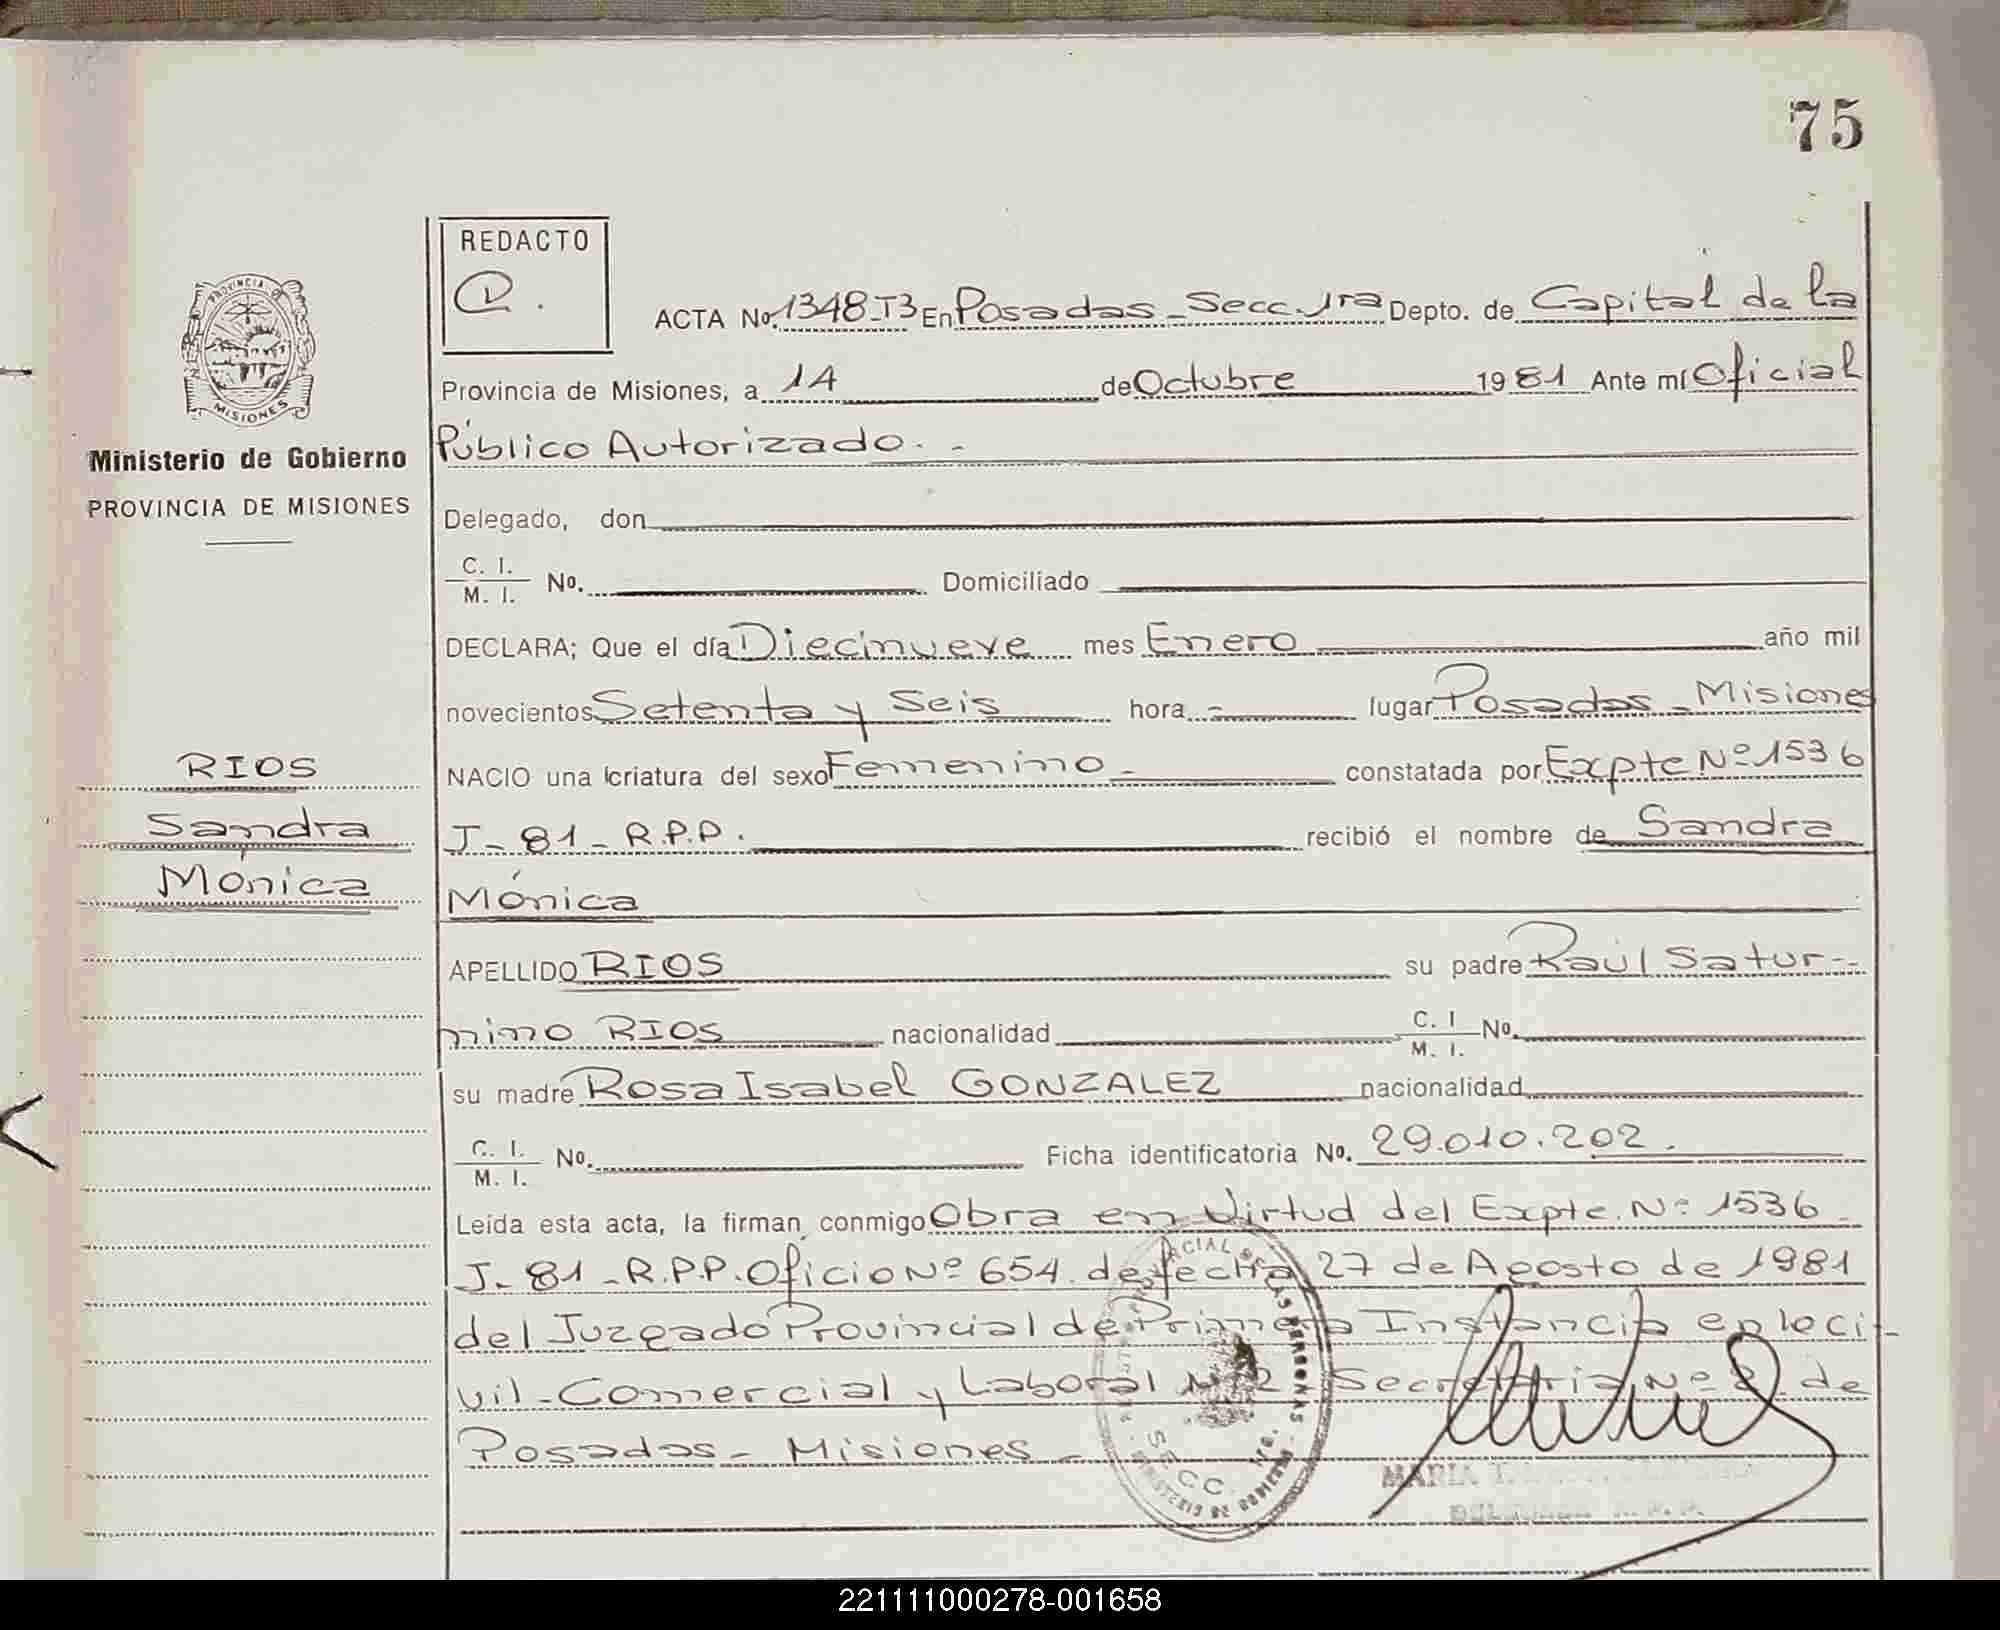 75
REDACTO
PROVINCIA DE
MISIONES
ACTA No. 1348-T3 En Posadas - Secc. 1ra Depto. de Capital de la
Provincia de Misiones, a 14 de Octubre 1981 Ante mí Oficial
Ministerio de Gobierno
Público Autorizado. -
PROVINCIA DE MISIONES
Delegado, don
C. I.
M. I. No. Domiciliado
DECLARA; Que el día Diecinueve mes Enero año mil
novecientos Setenta y Seis hora - lugar Posadas - Misiones
RIOS
NACIO una criatura del sexo Femenino - constatada por Expte Nº 1536
Sandra
J - 81 - R.P.P. recibió el nombre de Sandra
Mónica
Mónica
APELLIDO RIOS su padre Raúl Satur-
nino RIOS nacionalidad C. I M. I. No.
su madre Rosa Isabel GONZALEZ nacionalidad
C. I. M. I. No. Ficha identificatoria No. 29.010.202.
Leída esta acta, la firman conmigo Obra en Virtud del Expte. Nº 1536
J - 81 - R.P.P. Oficio Nº 654 de fecha 27 de Agosto de 1981
del Juzgado Provincial de Primera Instancia en lo Ci-
vil - Comercial y Laboral Nº 2 Secretaria Nº 2 de
Posadas - Misiones -
DE LAS PERSONAS
SECC. 1ra.
MINISTERIO DE GOBIERNO
MARIA
221111000278-001658